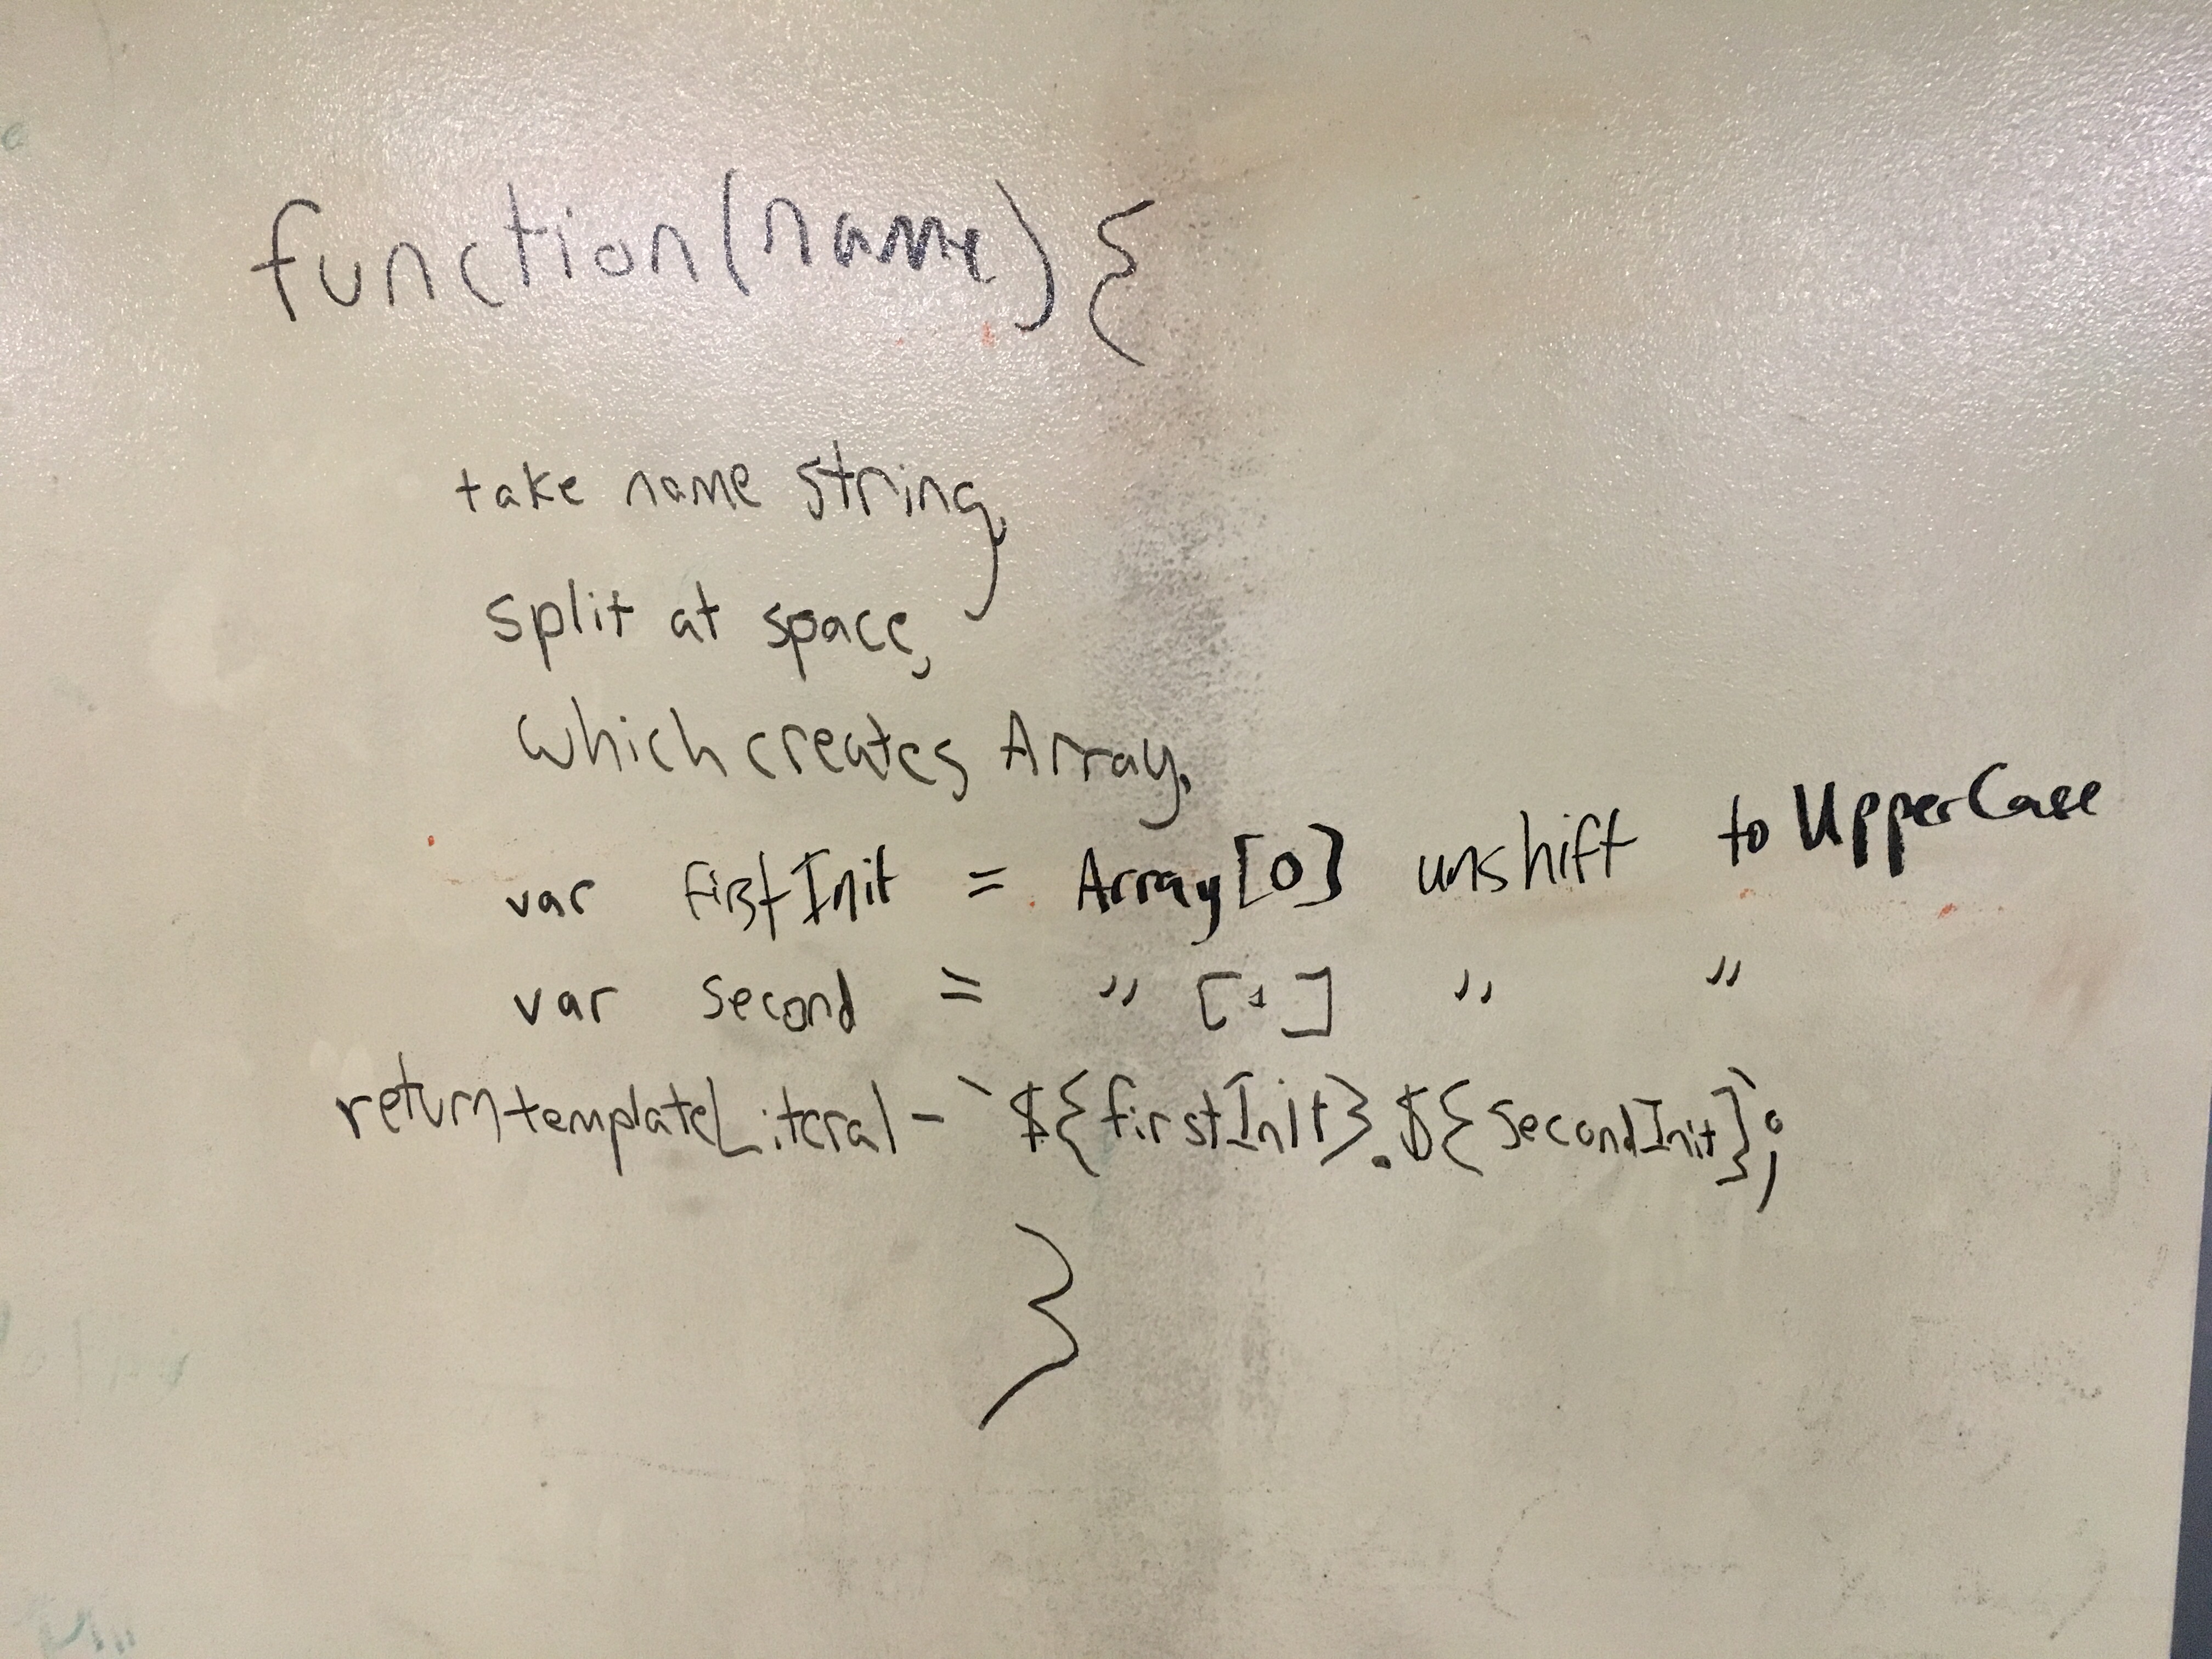 function(name){
take name string,
split at space,
which creates Array.
var firstInit = Array[0] unshift to UpperCase
var second = " [1] " "
return templateLiteral - `${firstInit}.${secondInit}`;
}